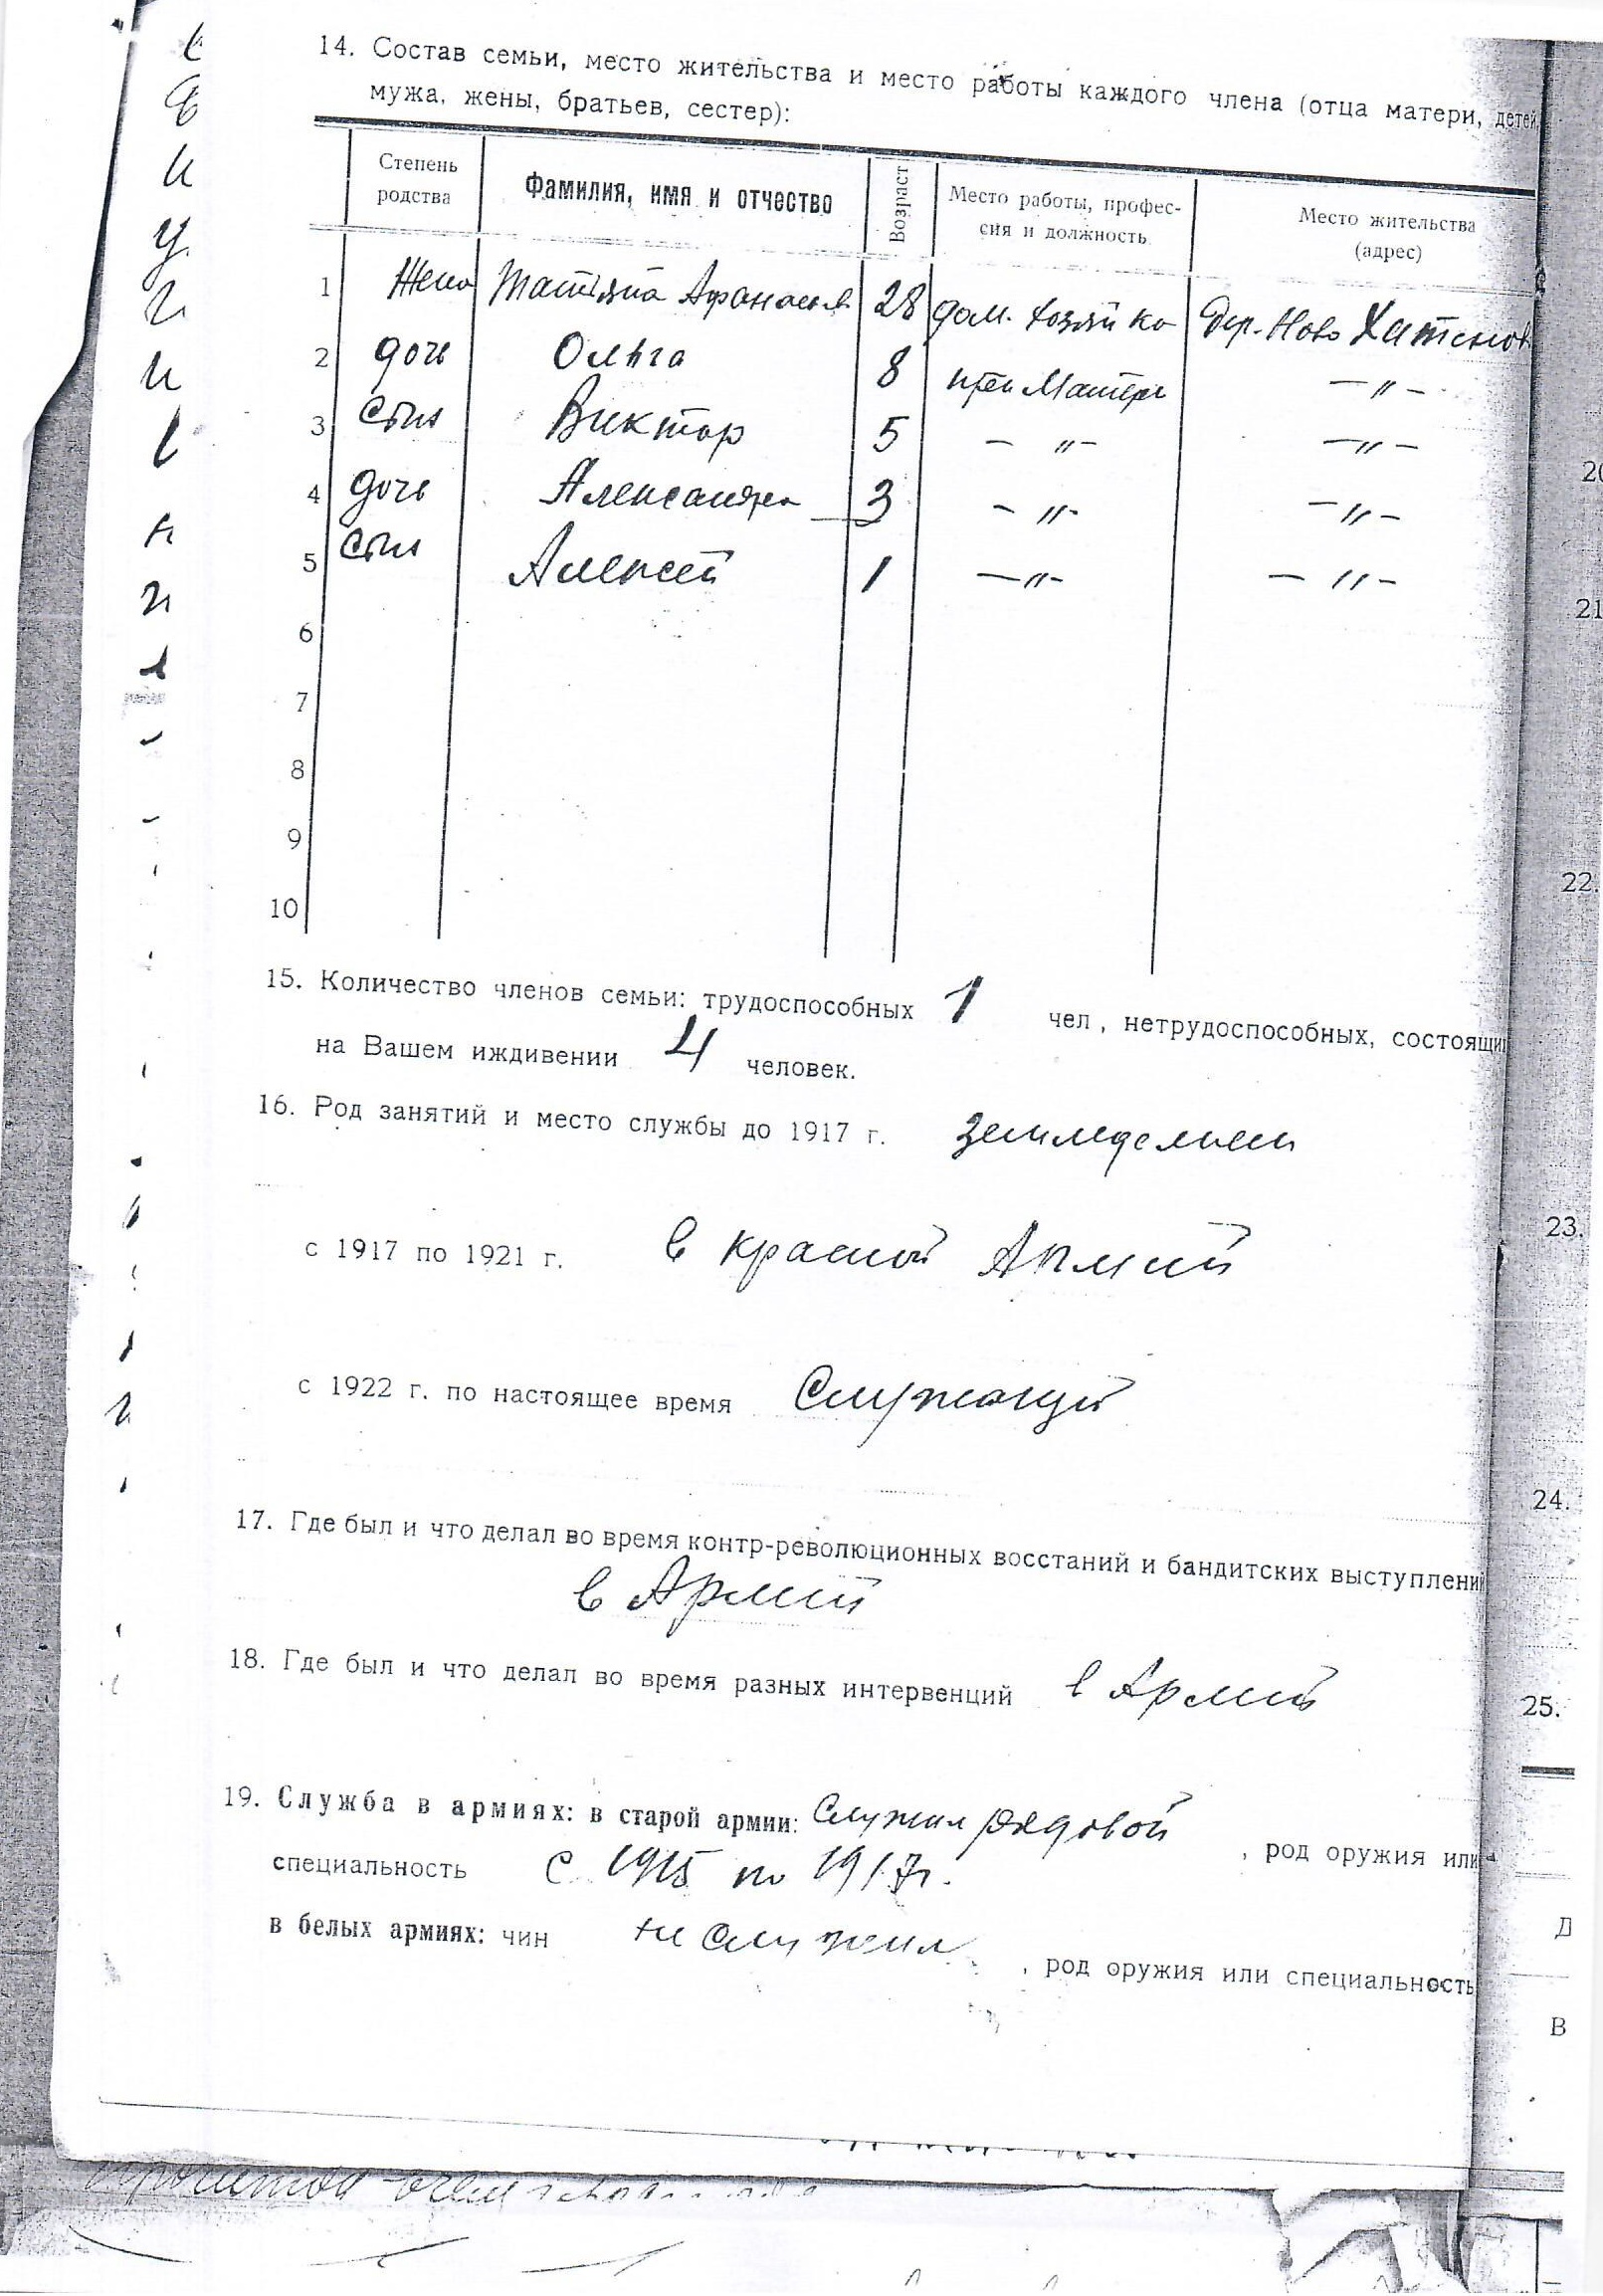 14. Состав семьи, место жительства и место работы каждого члена (отца матери, детей,
мужа, жены, братьев, сестер):
Степень родства
Фамилия, имя и отчество
Возраст
Место работы, профес-
сия и должность
Место жительства
(адрес)
1 Жена Татьяна Афанасьев 28 дом. хозяйка Дер. Ново
2 дочь Ольга 8 при Матери — „ —
3 сын Виктор 5 — „ — — „ —
4 дочь Александра 3 — „ — — „ —
5 сын Алексей 1 — „ — — „ —
6
7
8
9
10
15. Количество членов семьи: трудоспособных 1 чел , нетрудоспособных, состоящи
на Вашем иждивении 4 человек.
16. Род занятий и место службы до 1917 г. земледелием
с 1917 по 1921 г. в красной Армий
с 1922 г. по настоящее время Служащий
17. Где был и что делал во время контр-революционных восстаний и бандитских выступлени
в Армий
18. Где был и что делал во время разных интервенций в Армий
19. Служба в армиях: в старой армии: Служил рядовой , род оружия или
специальность с 1915 по 1917г.
в белых армиях: чин не служил , род оружия или специальность
20
21
22.
23.
24.
25.
Д
В